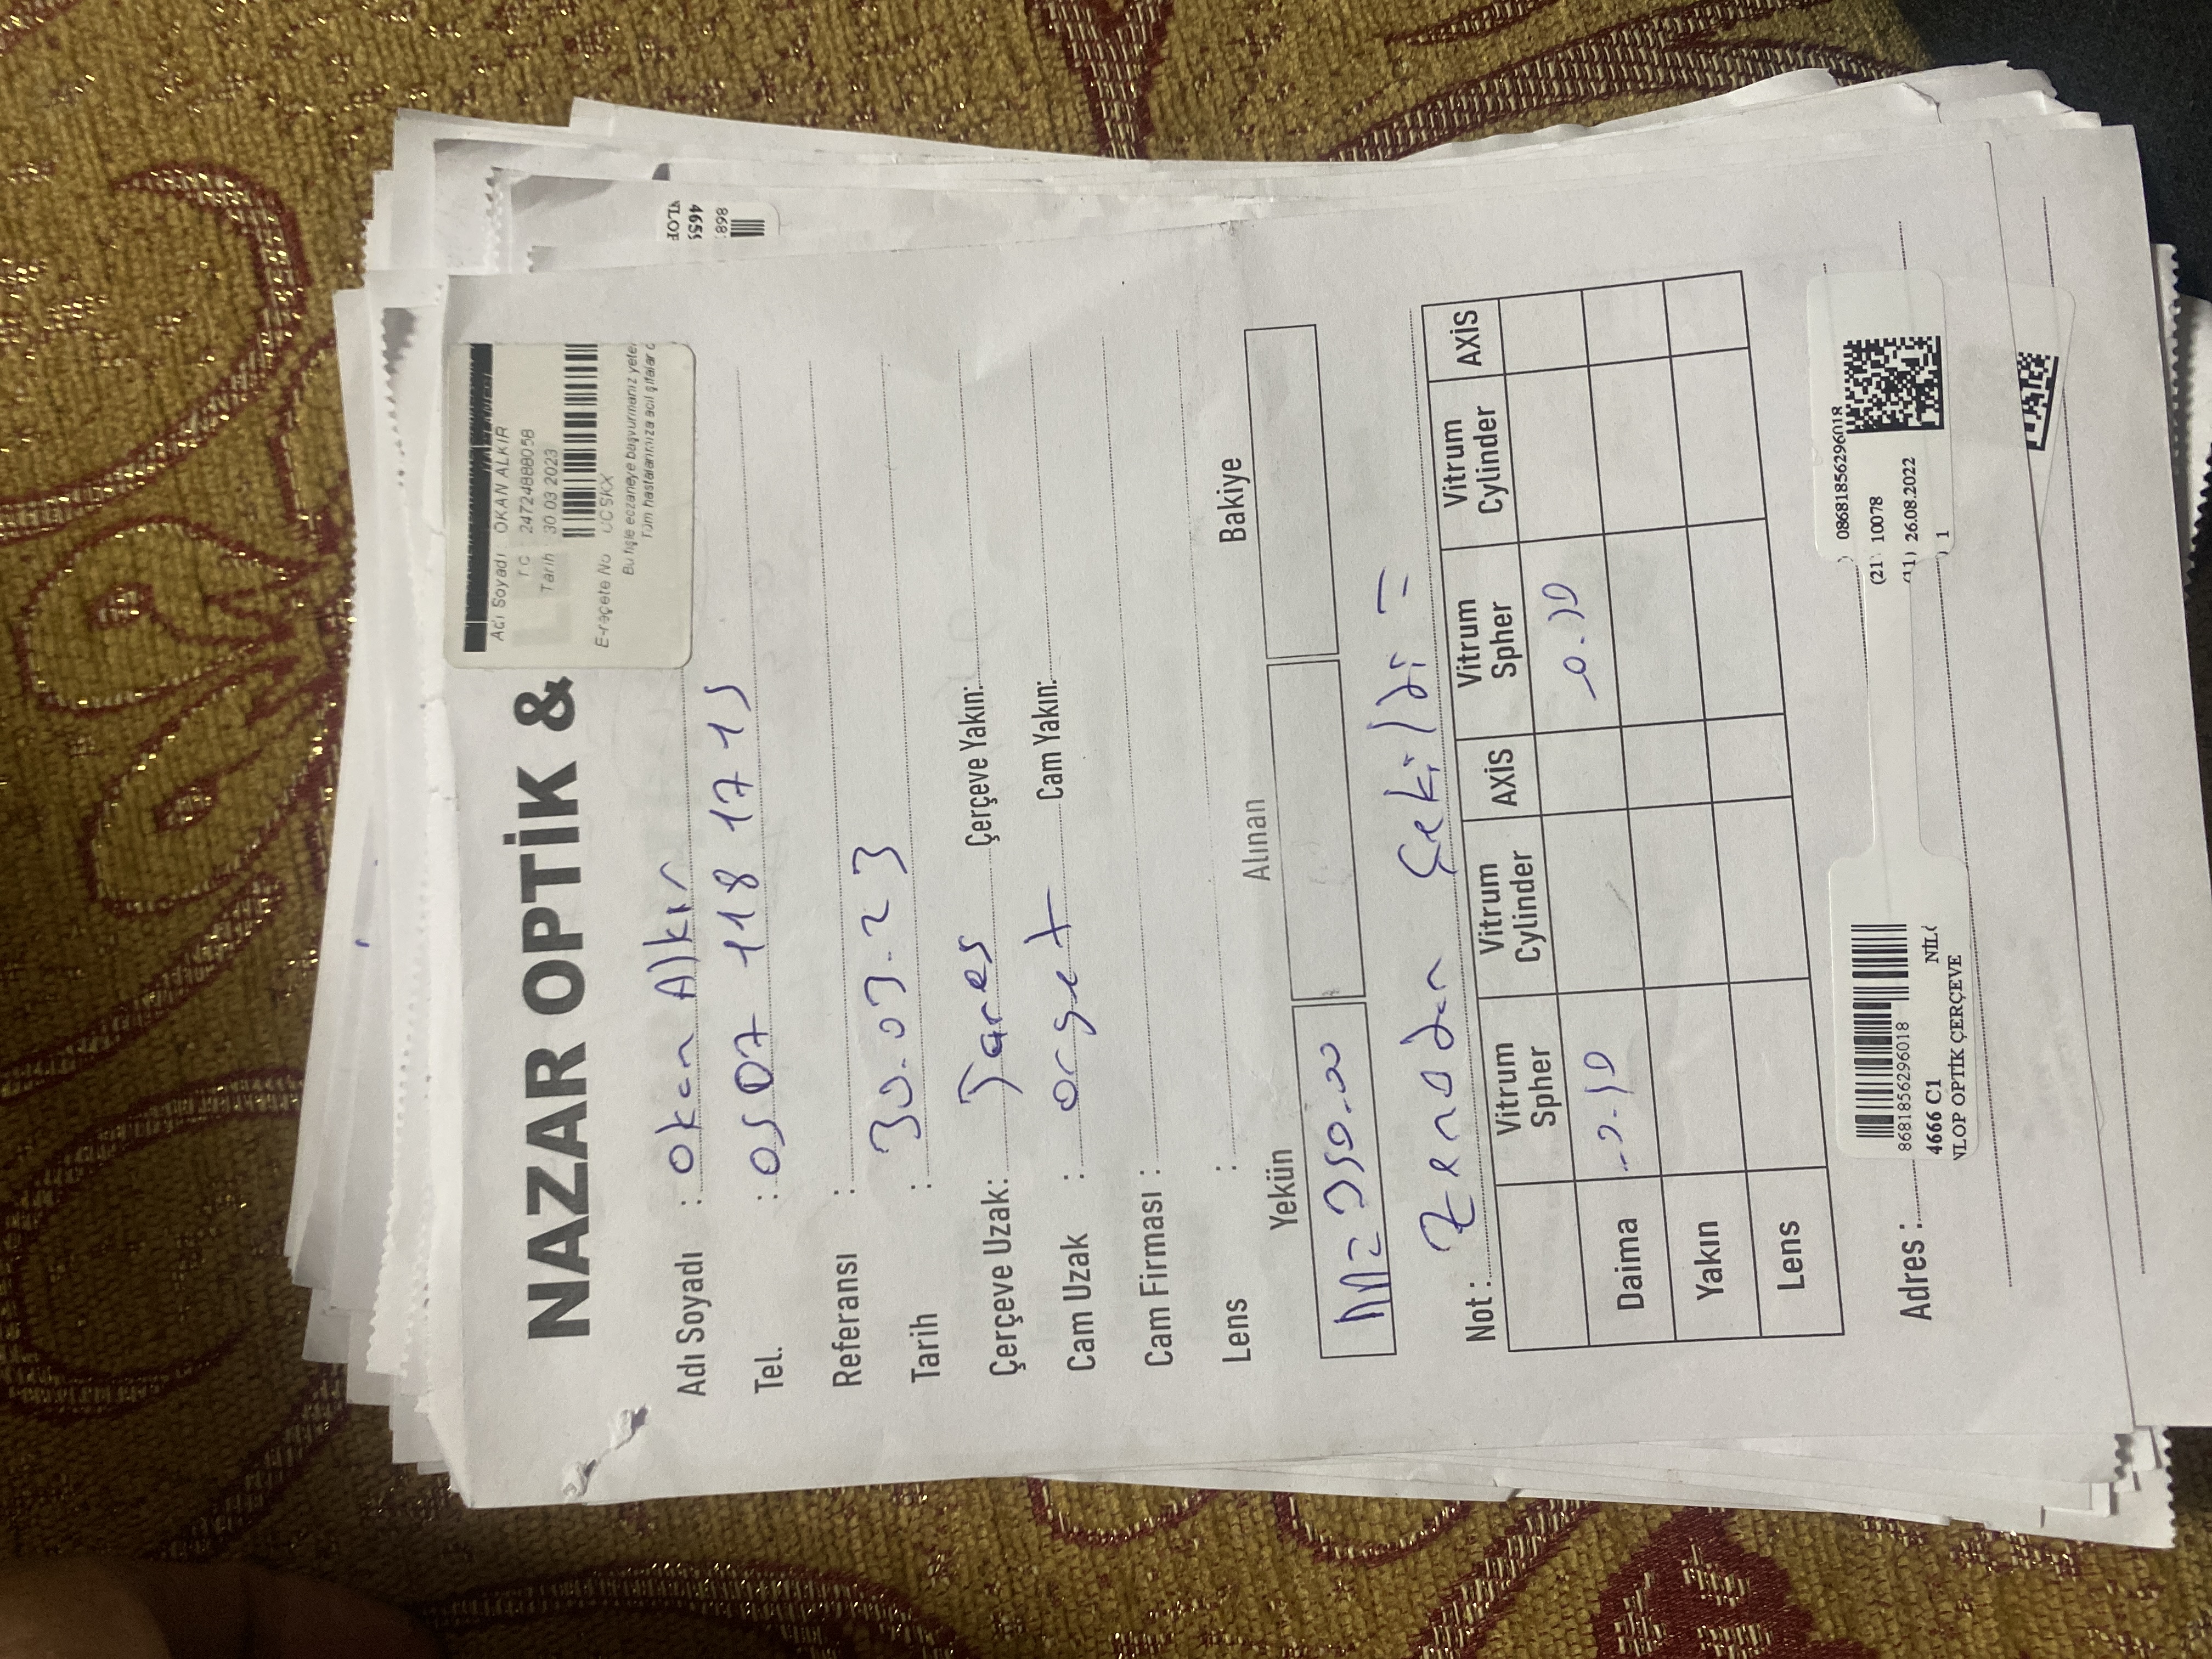 NAZAR OPTİK &
Adı Soyadı : OKAN ALKIR
TC 24724888058
Tarih 30 03 2023
E-reçete No UCSKX
Bu fişle eczaneye başvurmanız yete
Tüm hastalarımıza acil şifalar d
Adı Soyadı : Okan Alkır
Tel. : 0507 118 17 15
Referansı :
Tarih : 30.03.23
Çerçeve Uzak: Çerçeve Yakın:
Cam Uzak : Cam Yakın:
Cam Firması :
Lens :
Yekün Alınan Bakiye
Not : Zenodan Çekildi =
Vitrum Spher Vitrum Cylinder AXİS Vitrum Spher Vitrum Cylinder AXİS
Daima
Yakın
Lens
Adres :
8681856296018
4666 C1 NİL
NLOP OPTİK ÇERÇEVE
) 08681856296018
(21) 10078
(11) 26.08.2022
) 1
NLOP
4659
868